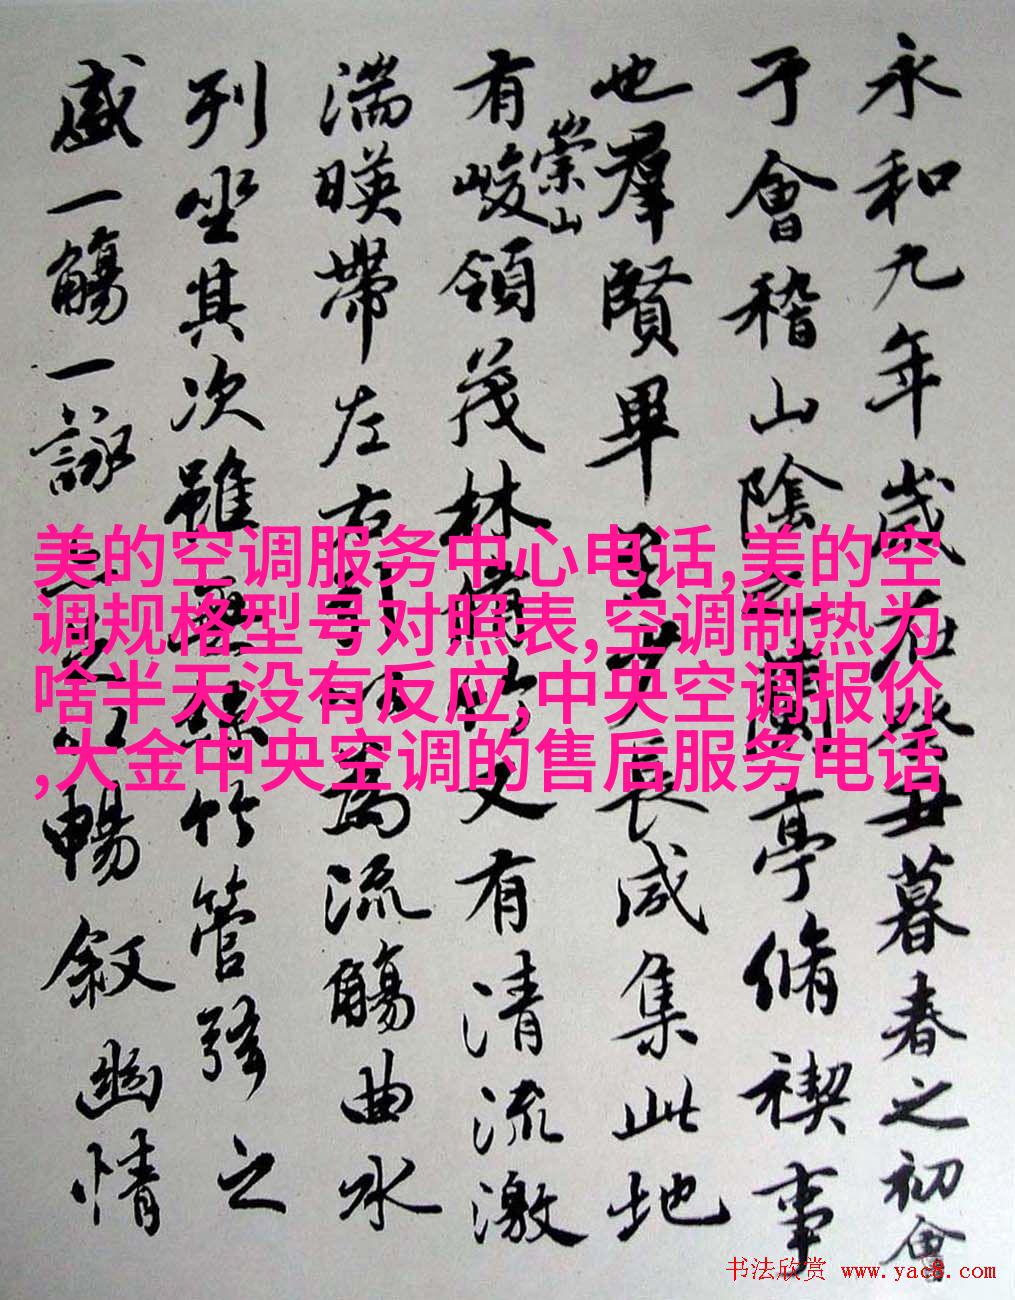 永和九年歲在癸丑暮春之初會
于會稽山陰之蘭亭脩禊事
也羣賢畢至少長咸集此地
有崇山峻領茂林脩竹又有清流激
湍暎帶左右引以為流觴曲水
列坐其次雖無絲竹管弦之
盛一觴一詠亦足以暢敘幽情
美的空调服务中心电话,美的空
调规格型号对照表,空调制热为
啥半天没有反应,中央空调报价
,大金中央空调的售后服务电话
书法欣赏 www.yac8.com